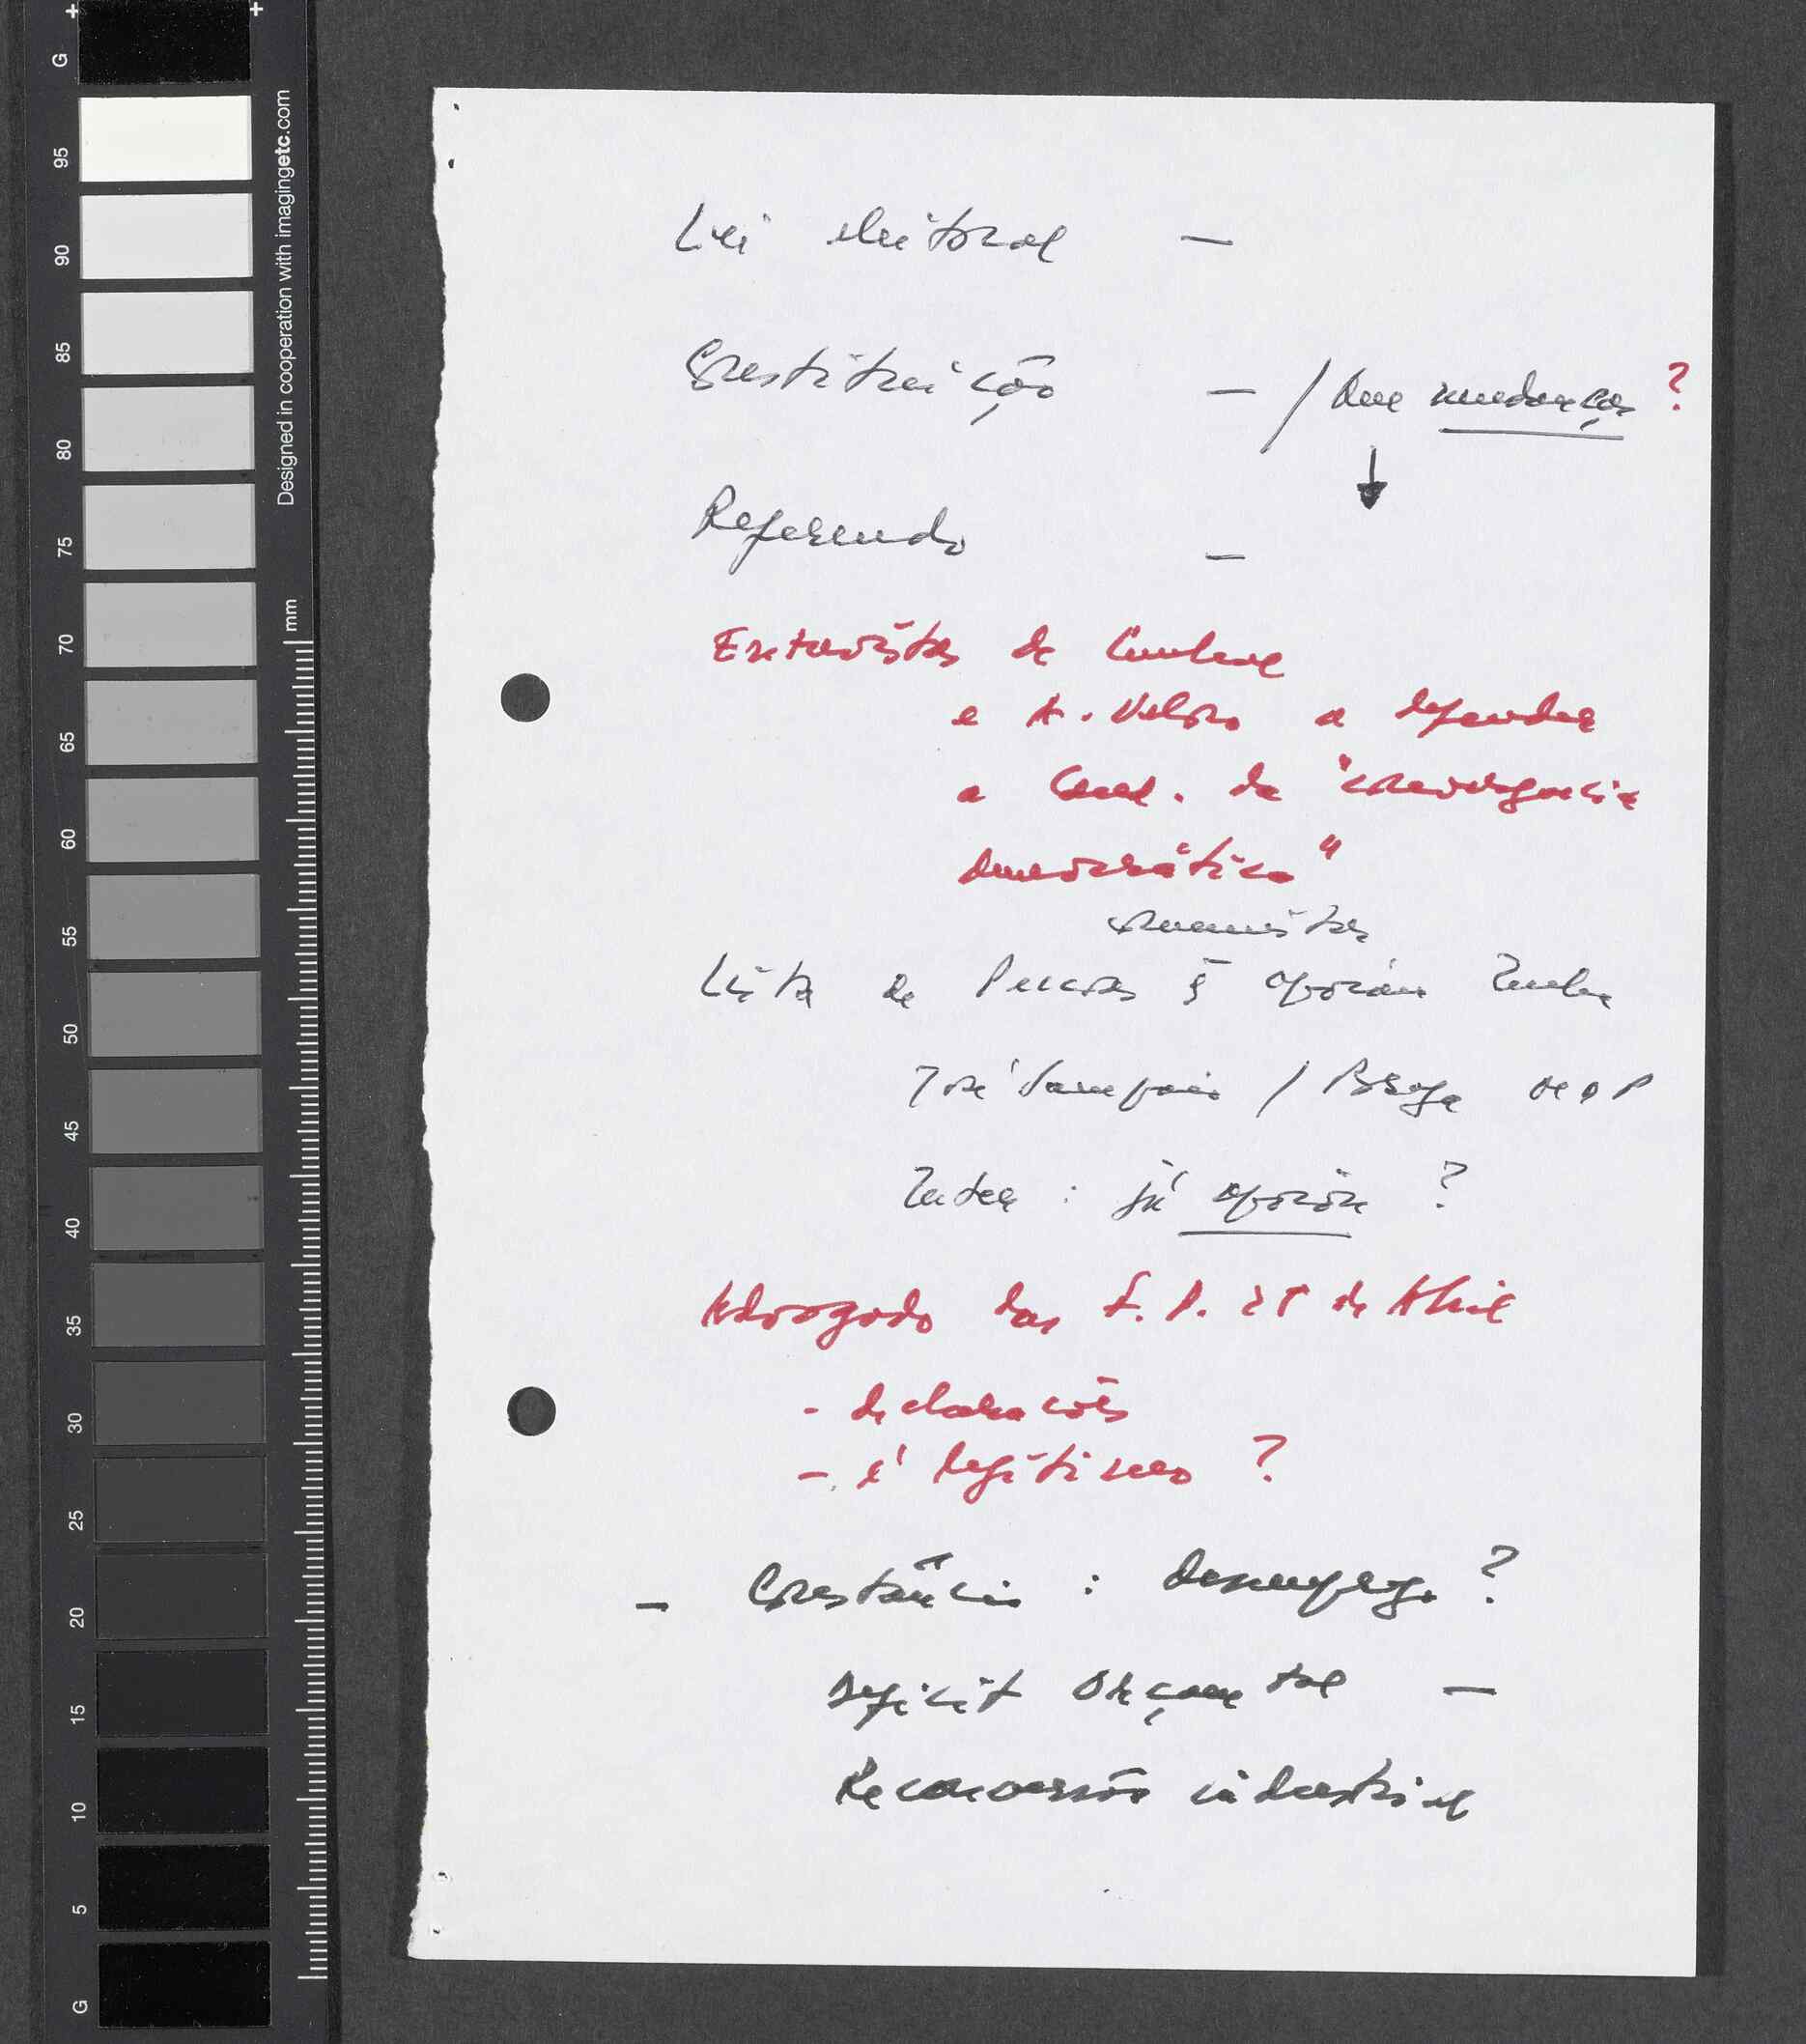 G
95
90
85
80
75
70
65
60
55
50
45
40
35
30
25
20
15
10
5
G
Designed in cooperation with imagingetc.com
mm
Lei eleitoral —
Constituição — / Que mudanças ?
Referendo —
Entrevistas de Cunhal
e A. Veloso a defender
a Cand. da "convergência
democrática"
comunistas
Lista de Pessoas q apoiam
José Sampaio / Braga
: já apoiou ?
Advogado das F. P. 25 de Abril
- declarações
- é legítimo ?
- Constâncio : Desemprego ?
Deficit Orçamental —
Reconversão industrial